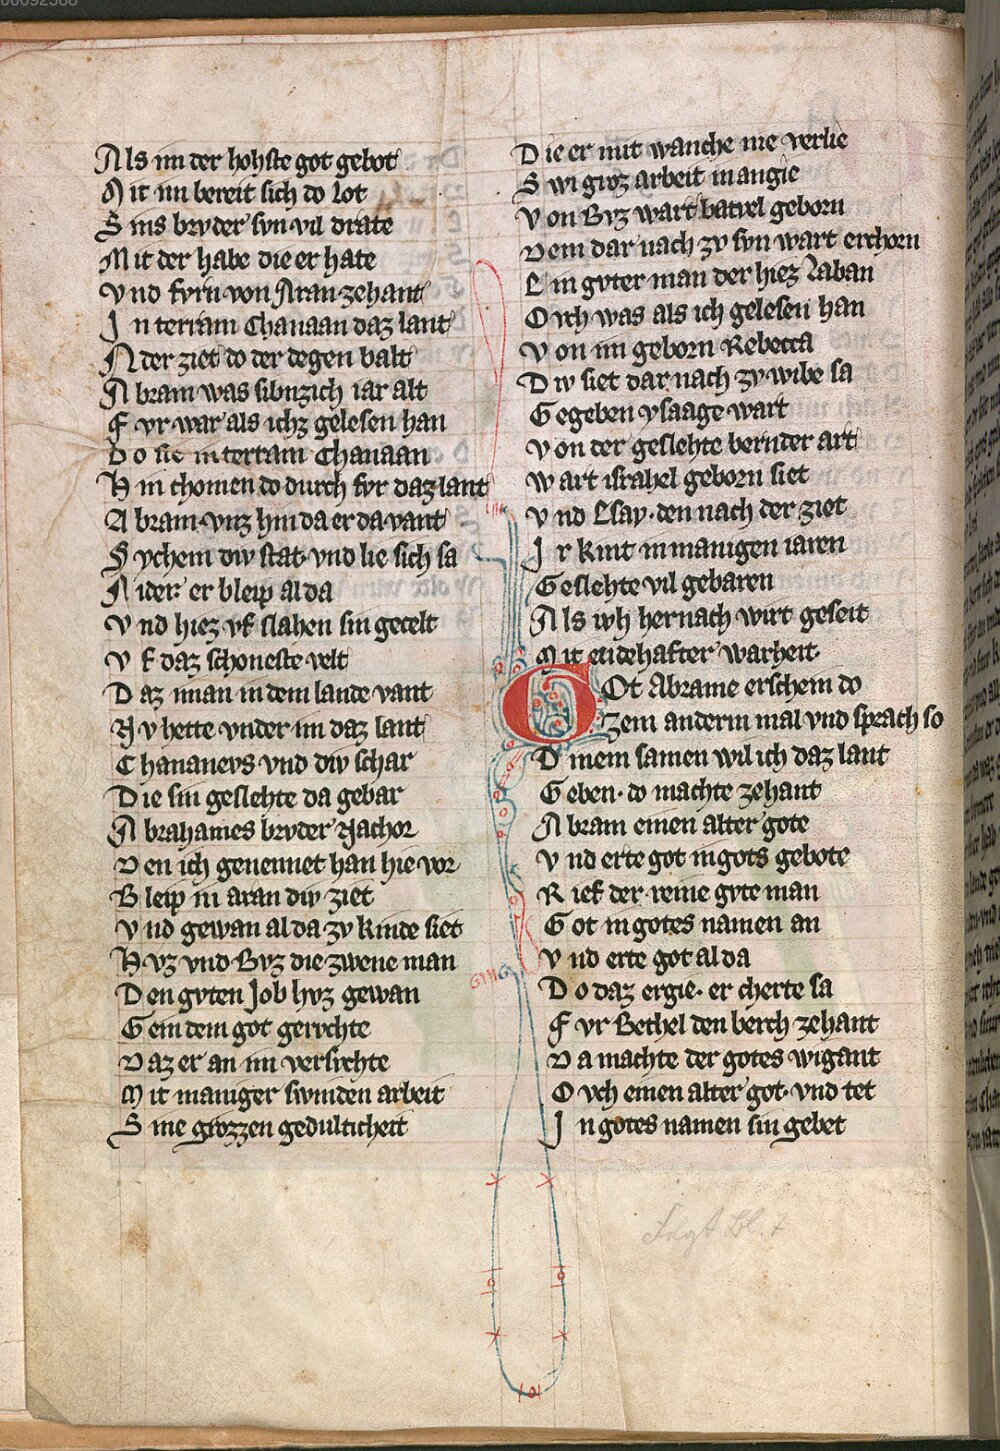 Als im der hohste got gebot
Mit im bereit sich do Lot
Sins brvder svn vil drate
Mit der habe die er hate
Vnd fvrn von Aran zehant
In terram Chanaan daz lant
An der ziet do der degen balt
Abram was sibnzich iar alt
Fvr war als ichz gelesen han
Do sie in terram Chanaan
Hin chomen do dvrch fvr daz lant
Abram vnz hin da er da vant
Sychem div stat vnd lie sich sa
Nider er bleip al da
Vnd hiez vf slahen sin gecelt
Vf daz schoneste velt
Daz man in dem lande vant
Nv hette vnder im daz lant
Chananevs vnd div schar
Die sin geslehte da gebar
Abrahames brvder Nachor
Den ich genennet han hie vor
Bleip in aran div ziet
Vnd gewan al da zv kinde siet
Hvz vnd Bvz die zwene man
Den gvten Job hvz gewan
Gein dem got gervchte
Daz er an im versvchte
Mit maniger swinden arbeit
Sine grozzen gedulticheit
Die er mit wanche nie verlie
Swi groz arbeit in angie
Von Bvz wart batvel geborn
Dem dar nach zv svn wart erchorn
Ein gvter man der hiez Laban
Ovch was als ich gelesen han
Von im geborn Rebecca
Div siet dar nach zv wibe sa
Gegeben ysaage wart
Von der geslehte bernder art
Wart israhel geborn siet
Vnd Esay den nach der ziet
Ir kint in manigen iaren
Geslehte vil gebaren
Als ivh hernach wirt geseit
Mit eidehafter warheit
GOt Abrame erschein do
Zem anderm mal vnd sprach so
Dinem samen wil ich daz lant
Geben do machte zehant
Abram einen alter gote
Vnd erte got in gots gebote
Rief der reine gvte man
Got in gotes namen an
Vnd erte got al da
Do daz ergie er cherte sa
Fvr Bethel den berch zehant
Da machte der gotes wigant
Ovch einen alter got vnd tet
In gotes namen sin gebet
Folgt Bl. 7